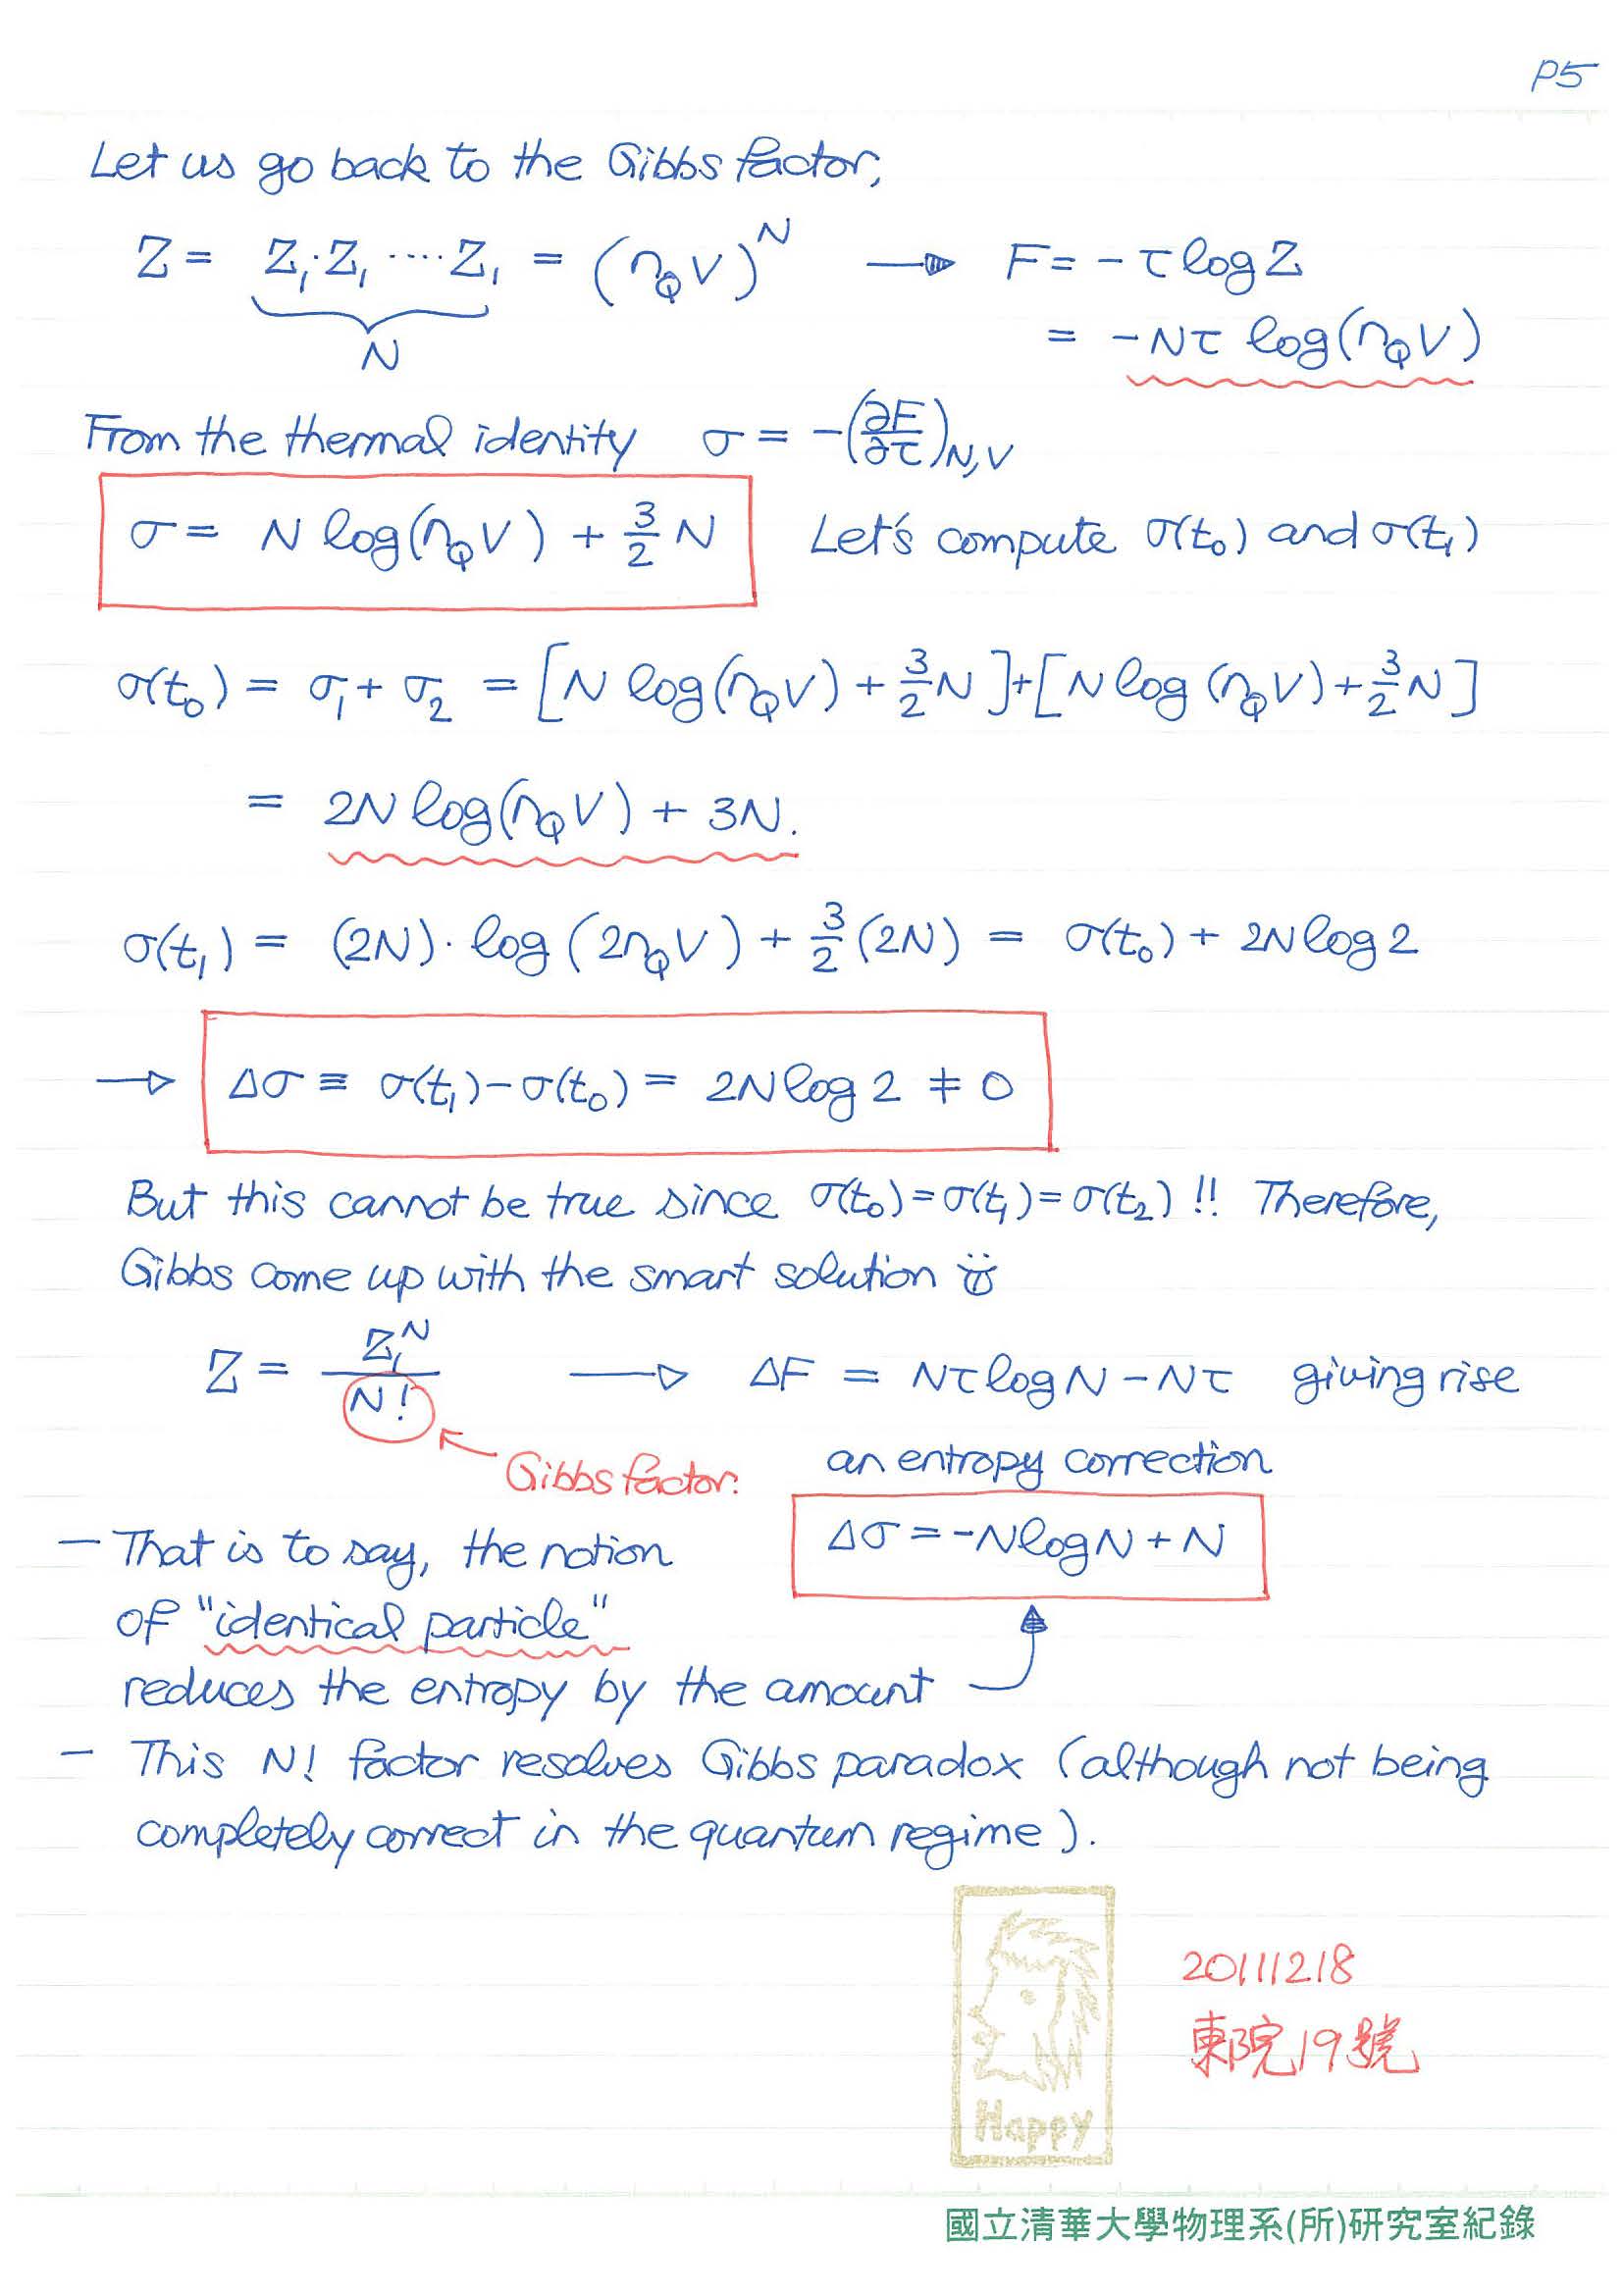 P5
Let us go back to the Gibbs factor,
Z = Z₁·Z₁ ···· Z₁ = (n_Q V)^N → F = -τ log Z
N
= -Nτ log(n_Q V)
From the thermal identity σ = -(∂F/∂τ)_N,V
σ = N log(n_Q V) + 3/2 N Let's compute σ(t₀) and σ(t₁)
σ(t₀) = σ₁ + σ₂ = [N log(n_Q V) + 3/2 N] + [N log(n_Q V) + 3/2 N]
= 2N log(n_Q V) + 3N.
σ(t₁) = (2N)· log(2n_Q V) + 3/2 (2N) = σ(t₀) + 2N log 2
→ Δσ ≡ σ(t₁) - σ(t₀) = 2N log 2 ≠ 0
But this cannot be true since σ(t₀) = σ(t₁) = σ(t₂) !! Therefore,
Gibbs come up with the smart solution
Z = Z₁^N / N! → ΔF = Nτ log N - Nτ giving rise
Gibbs factor.
an entropy correction
Δσ = -N log N + N
- That is to say, the notion
of "identical particle"
reduces the entropy by the amount
- This N! factor resolves Gibbs paradox (although not being
completely correct in the quantum regime).
Happy
20111218
東院19號
國立清華大學物理系(所)研究室紀錄